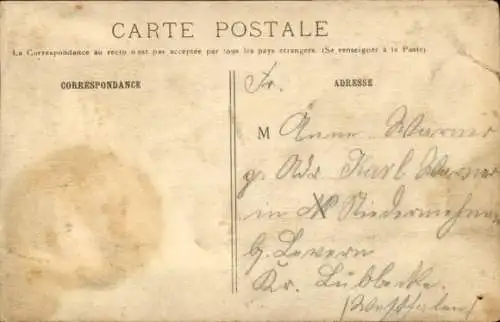 CARTE POSTALE
La Correspondance au recto n'est pas acceptée par tous les pays étrangers. (Se renseigner à la Poste)
CORRESPONDANCE
ADRESSE
Fr.
M Änne Warner
p. Adr Karl Werner
in Niedermehnen
b. Levern
Kr. Lübbecke.
(Westfalen)